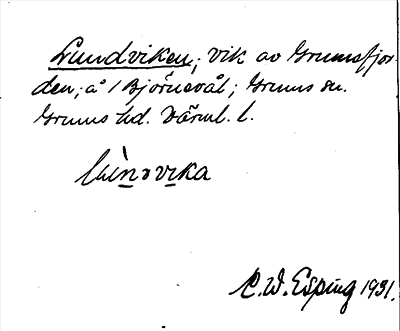 Lundviken; vik av Grumsfjor-
den; å 1 Björnevål; Grums sn.
Grums hd. Värml. l.
C. W. Esping 1931.